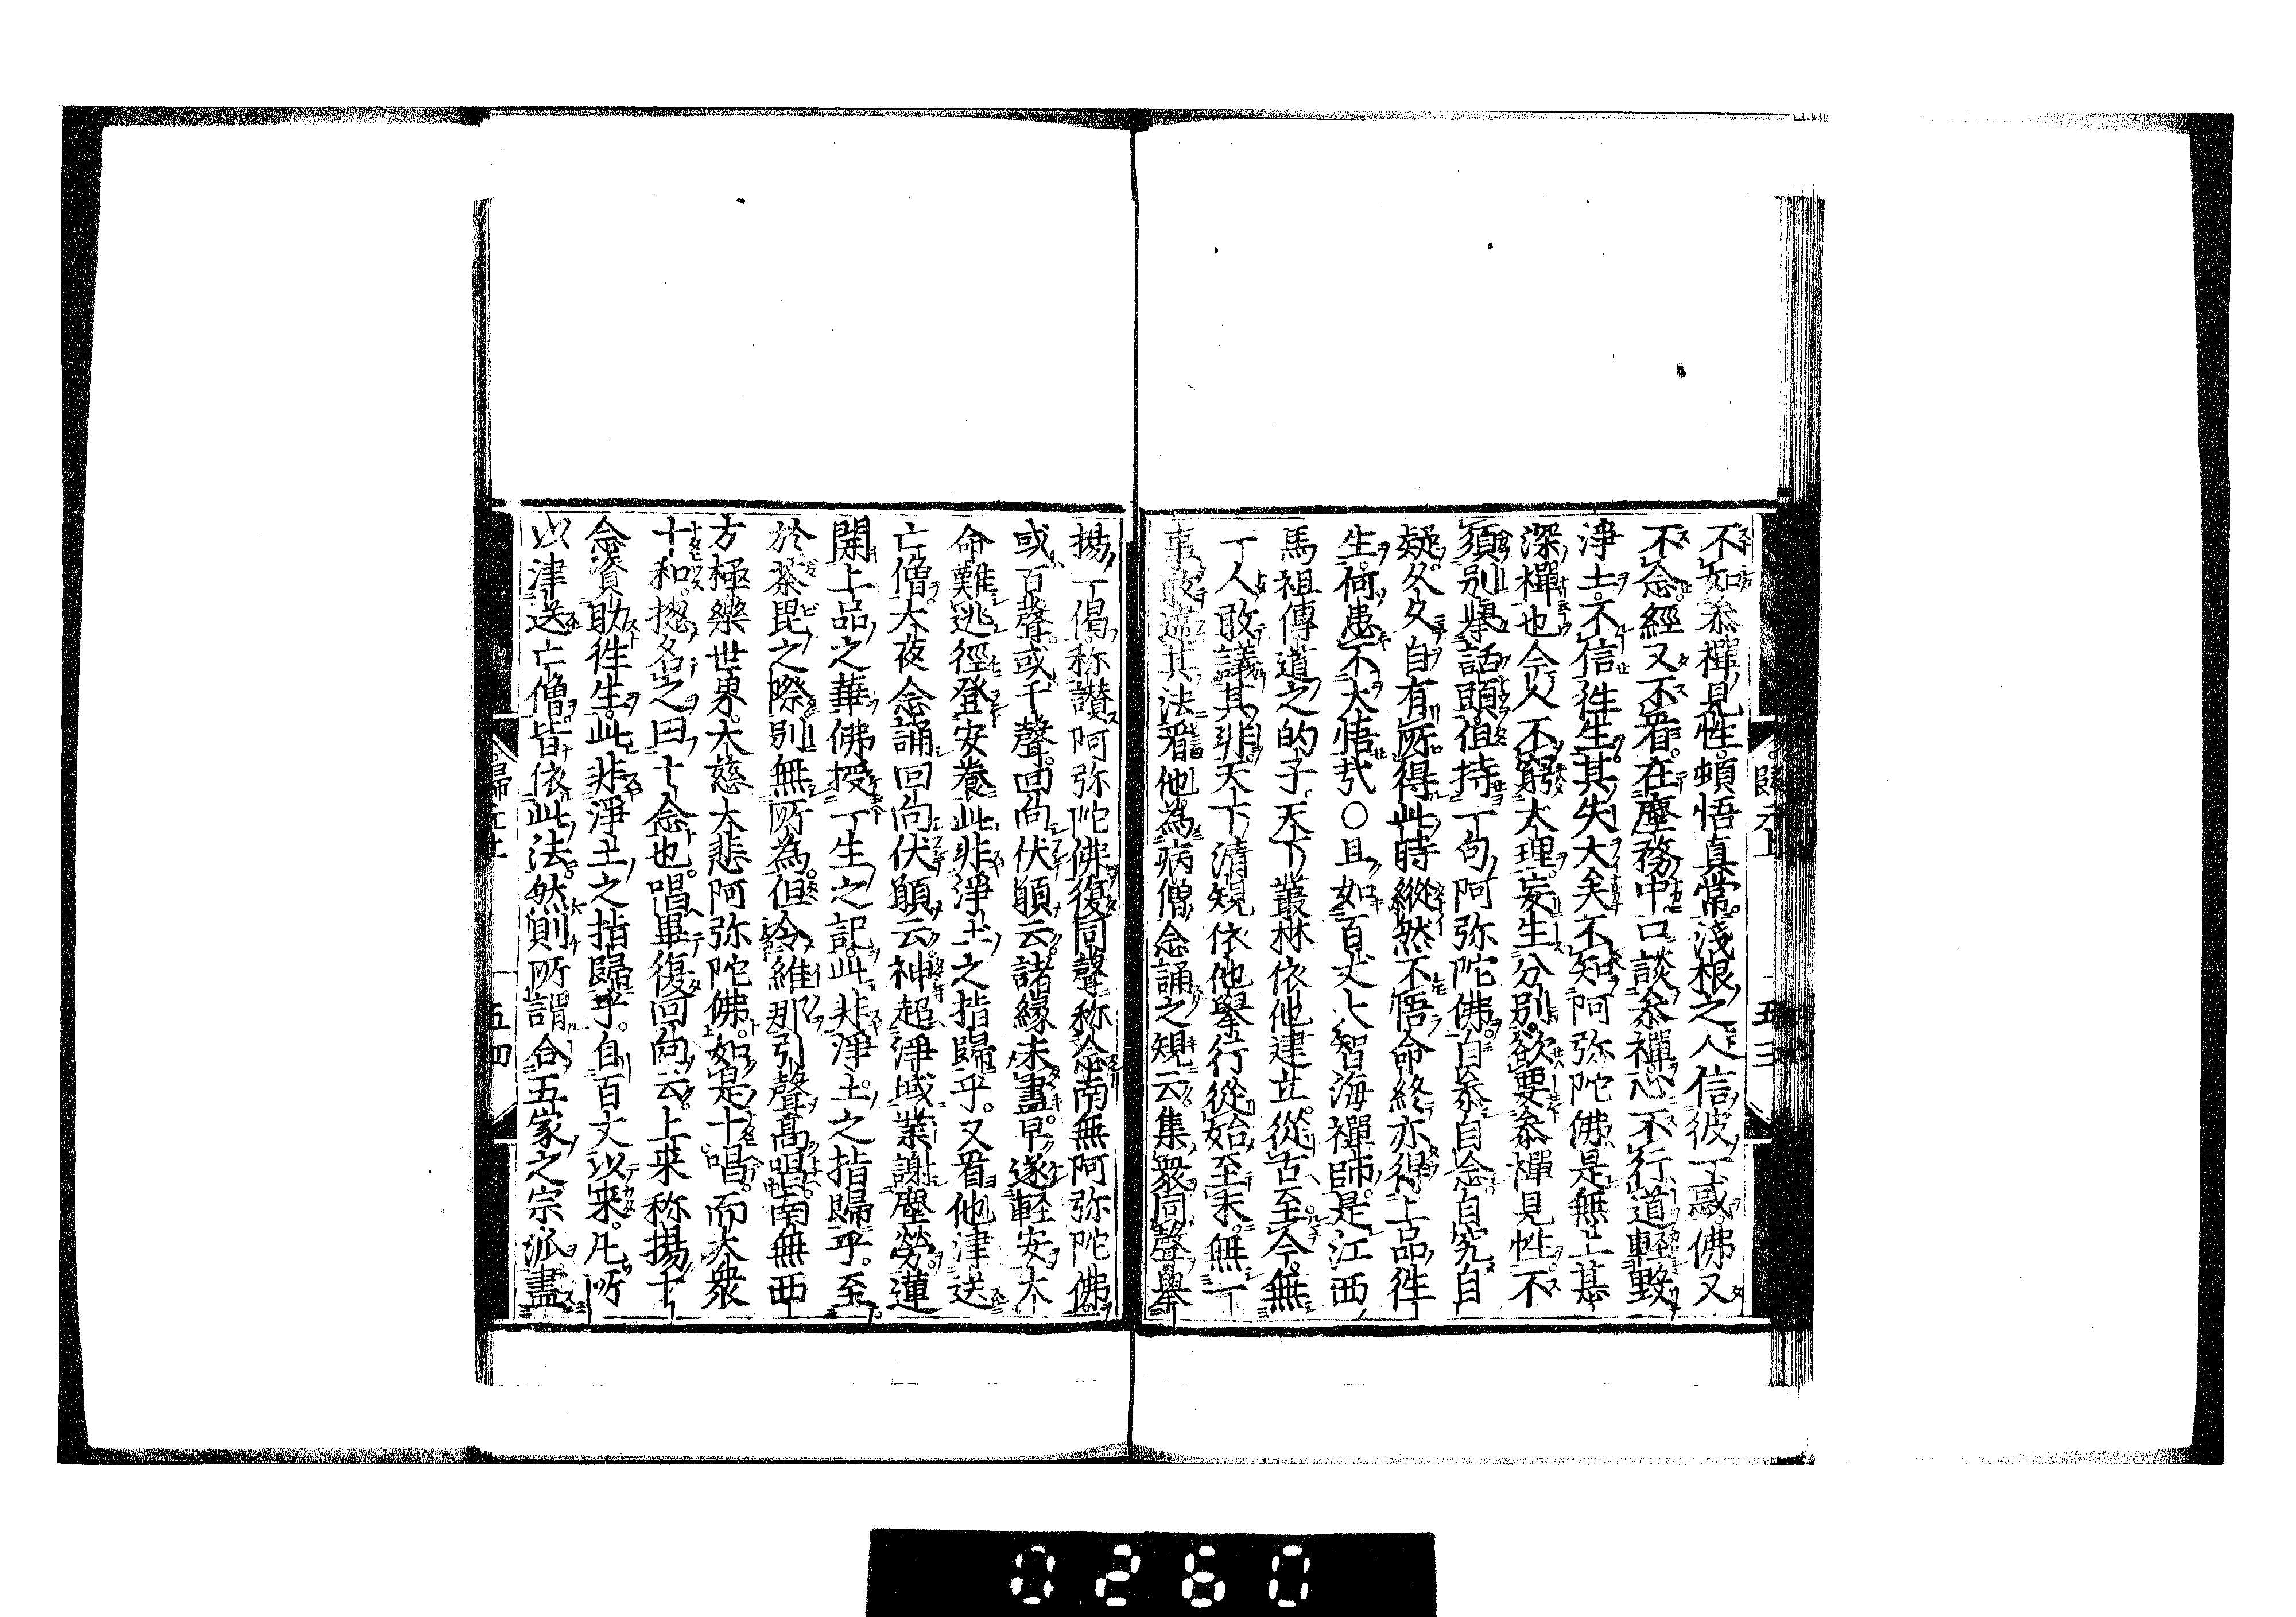 不知參禪見性頓悟真常淺根之人信彼一惑佛又
不念經又不看在塵務中口談參禪心不行道輕毀
淨土不信往生其失大矣不知阿弥陀佛是無上甚
深禪也今人不窮大理妄生分別欲要參禪見性不
須別擧話頭但持一句阿弥陀佛自參自念自究自
疑久久自有所得此時縱然不悟命終亦得上品往
生何患不大悟哉○且如百丈大智海禪師是江西
馬祖傳道之的子天下叢林依他建立從古至今無
一人敢議其非天下清規依他擧行從始至末無一
事敢違其法看他為病僧念誦之規云集衆同聲擧
揚一偈称讃阿弥陀佛復同聲称念南無阿弥陀佛
或百聲或千聲回向伏願云諸緣未盡早遂軽安大
命難逃徑登安養此非淨土之指歸乎又看他津送
亡僧大夜念誦回向伏願云神超淨域業謝塵勞蓮
開上品之華佛授一生之記此非淨土之指歸乎至
於茶毘之際別無所為但令維那引聲高唱南無西
方極樂世界大慈大悲阿弥陀佛如是十唱而大衆
十和揔名之曰十念也唱畢復回向云上来称揚十
念資助徃生此非淨土之指歸乎自百丈以来凡所
以津送亡僧皆依此法然則所謂合五家之宗派盡
歸元上
五三
歸元上
五四
0260